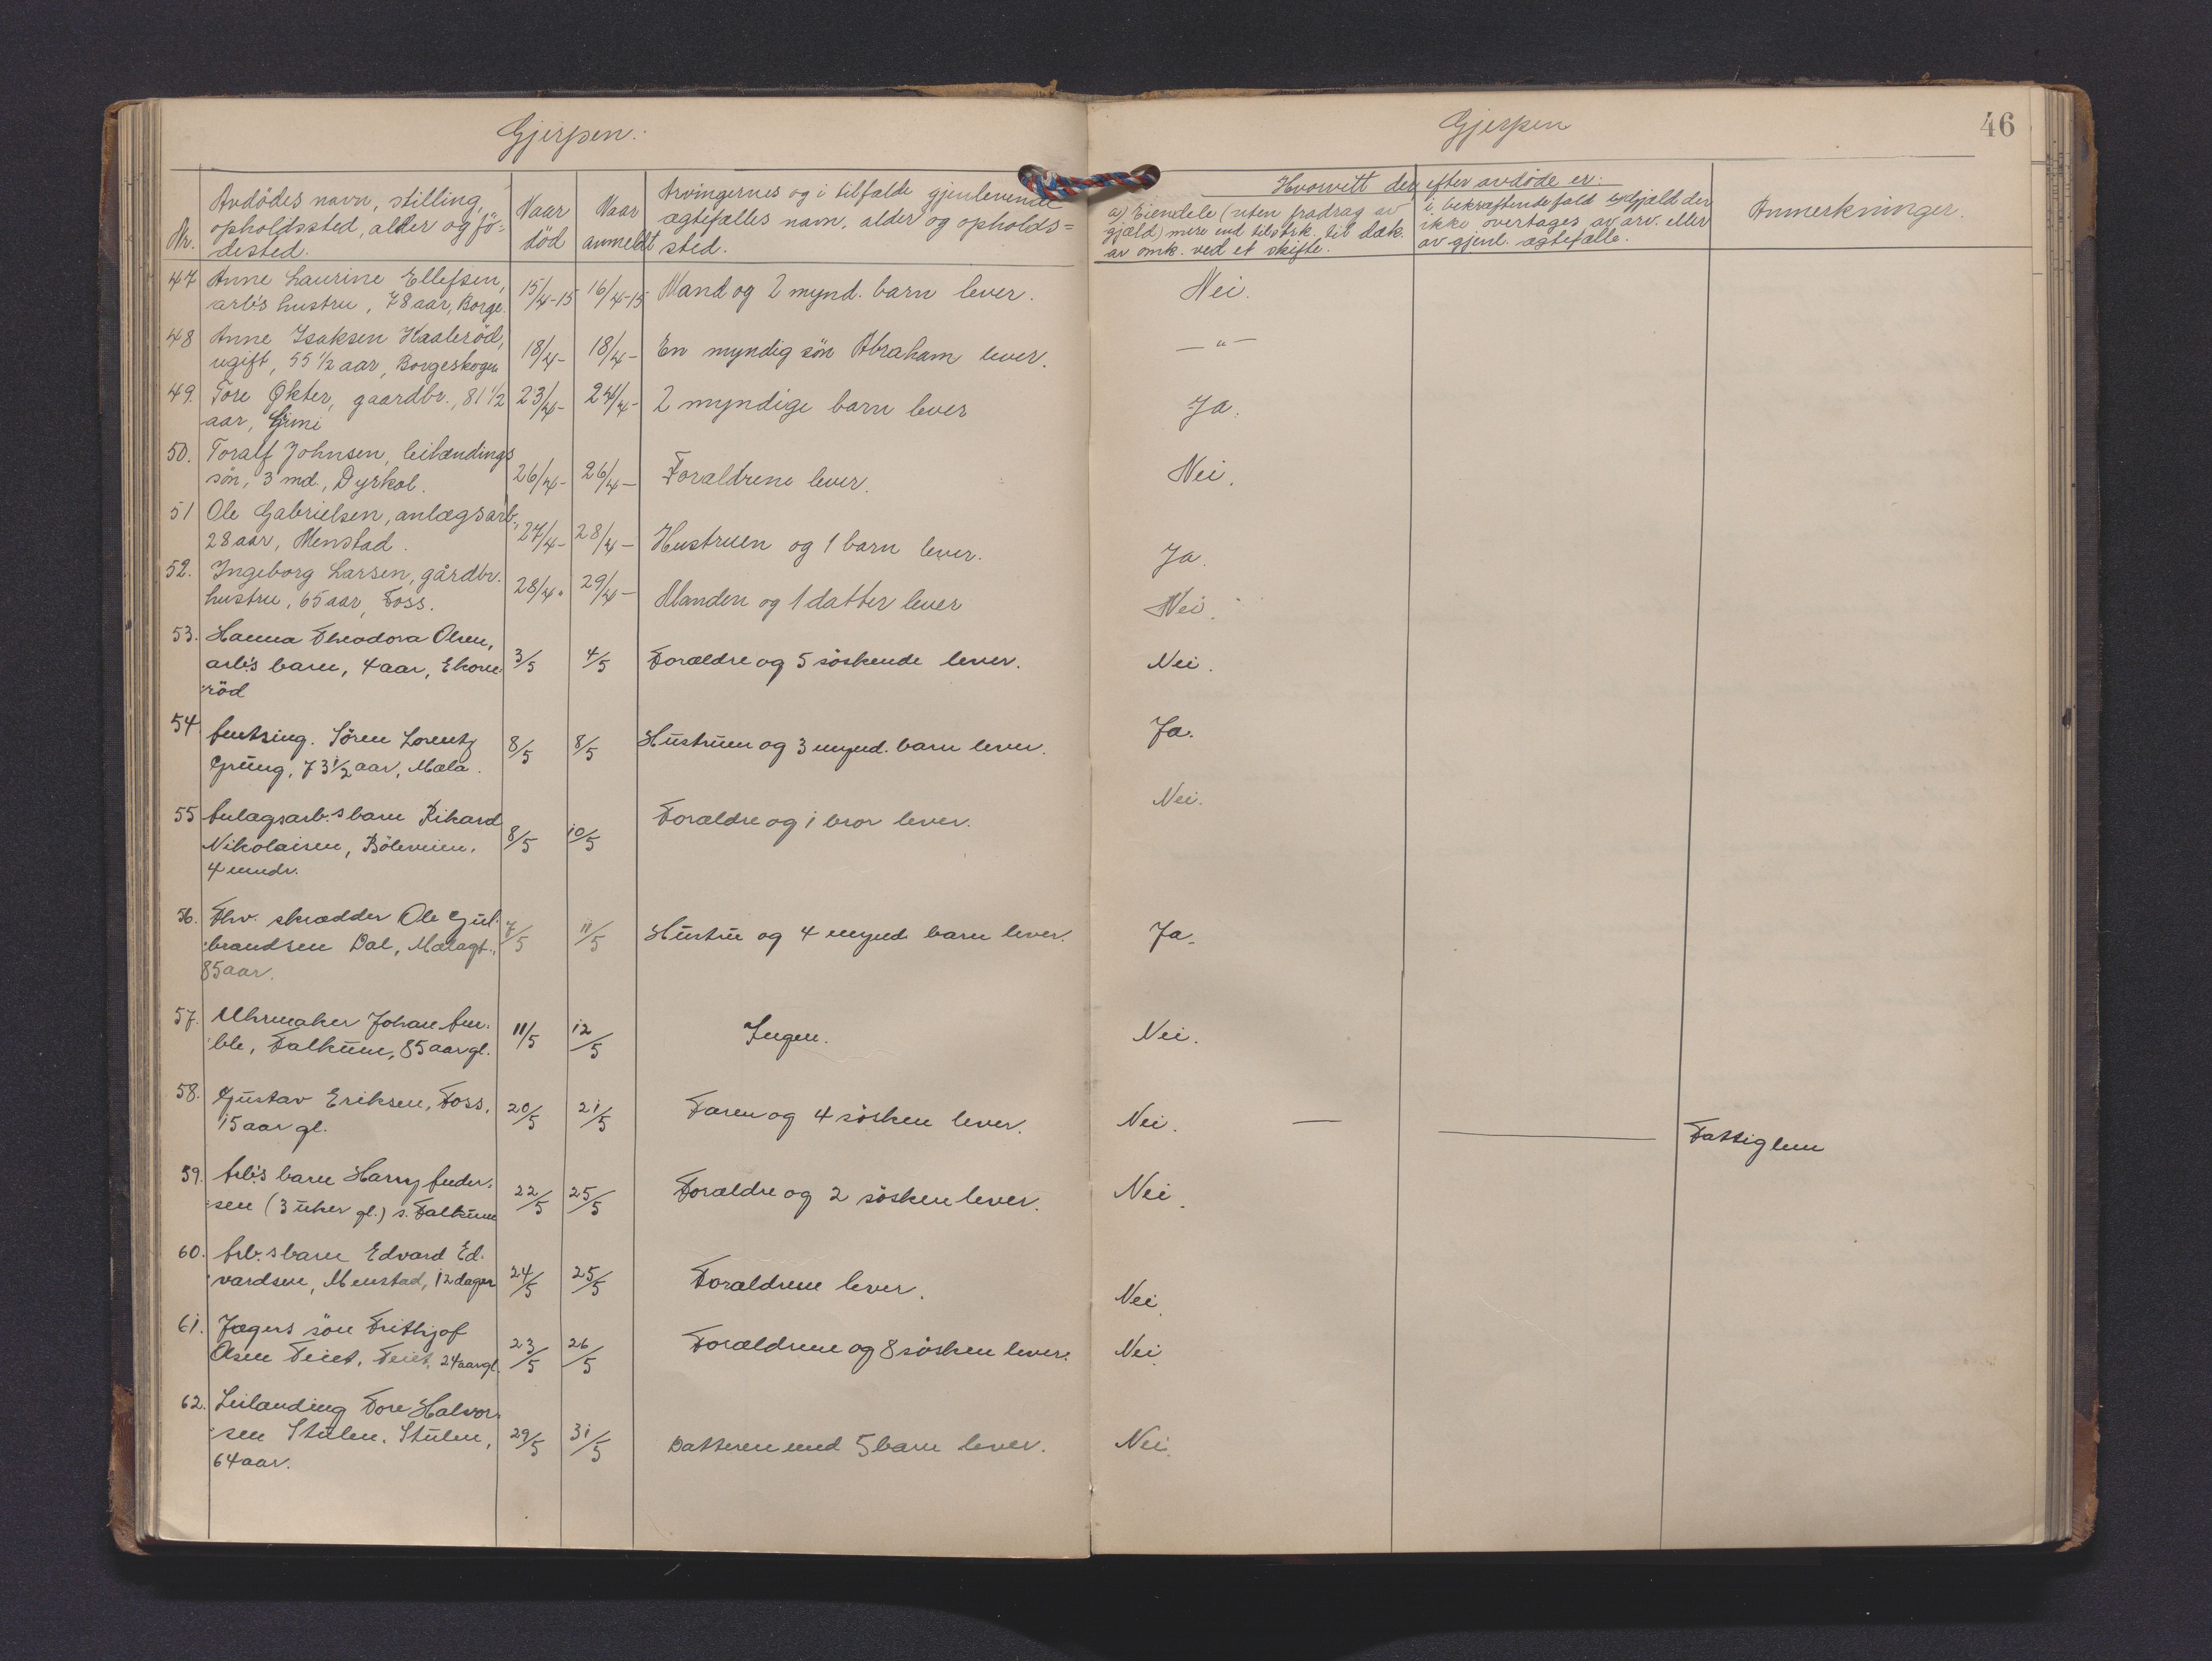 Gjerpen.
Gjerpen
46
Nr.
Avdödes navn, stilling,
opholdssted, alder og fö-
dested.
Naar
död
Naar
anmeldt
Arvingernes og i tilfælde gjenlevende
ægtefælles navn, alder og opholds=
sted.
Hvorvitt der efter avdöde er:
a) Eiendele (uten fradrag av
gjæld) mere end tilstrk. til dæk.
av omk. ved et skifte.
i bekræftende fald b) Gjæld der
ikke overtages av arv. eller
av gjenl. ægtefælle.
Anmerkninger.
47 Anne Laurine Ellefsen,
arb's hustru, 78 aar, Borge. 15/4-15 16/4-15 Mand og 2 mynd. barn lever. Nei.
48 Anne Isaksen Haaleröd,
ugift, 55 1/2 aar, Borgeskogen 18/4- 18/4- En myndig sön Abraham lever. — " —
49. Tore Økter, gaardbr., 81 1/2 23/4- 24/4- 2 myndige barn lever Ja.
aar, Gimi
50. Toralf Johnsen, leilændings
sön, 3 md., Dyrkol. 26/4- 26/4- Forældrene lever. Nei.
51 Ole Gabrielsen, anlægsarb.,
28 aar, Menstad. 27/4- 28/4- Hustruen og 1 barn lever. Ja.
52. Ingeborg Larsen, gårdbr.
hustru, 65 aar, Foss. 28/4- 29/4- Manden og 1 datter lever Nei.
53. Hanna Theodora Olsen,
arb's barn, 4 aar, Ekorn- 3/5 4/5 Forældre og 5 söskende lever. Nei.
röd
54. Amtsing. Sören Lorentz
Grüng, 73 1/2 aar, Mæla. 8/5 8/5 Hustruen og 3 mynd. barn lever. Ja.
55 Anlagsarb.s barn Rikard
Nikolaisen, Böleveien, 8/5 10/5 Forældre og 1 bror lever. Nei.
4 mndr.
56. Fhv. skrædder Ole Gul-
brandsen Dal, Mælagt., 7/5 11/5 Hustru og 4 mynd. barn lever. Ja.
85 aar.
57. Uhrmaker Johan Am-
ble, Falkum, 85 aar gl. 11/5 12/5 Ingen. Nei.
58. Gustav Eriksen, Foss,
15 aar gl. 20/5 21/5 Faren og 4 sösken lever. Nei. — — Fattiglem
59. Arb's barn Harry Ander-
sen (3 uker gl.) s. Falkum 22/5 25/5 Forældre og 2 sösken lever. Nei.
60. Arb.s barn Edvard Ed-
vardsen, Menstad, 12 dager 24/5 25/5 Forældrene lever. Nei.
61. Jægers sön Frithjof
Olsen Feiet, Feiet, 24 aar gl. 23/5 26/5 Forældrene og 8 sösken lever. Nei.
62. Leilænding Tore Halvor-
sen Stulen, Stulen, 29/5 31/5 Datteren med 5 barn lever. Nei.
64 aar.